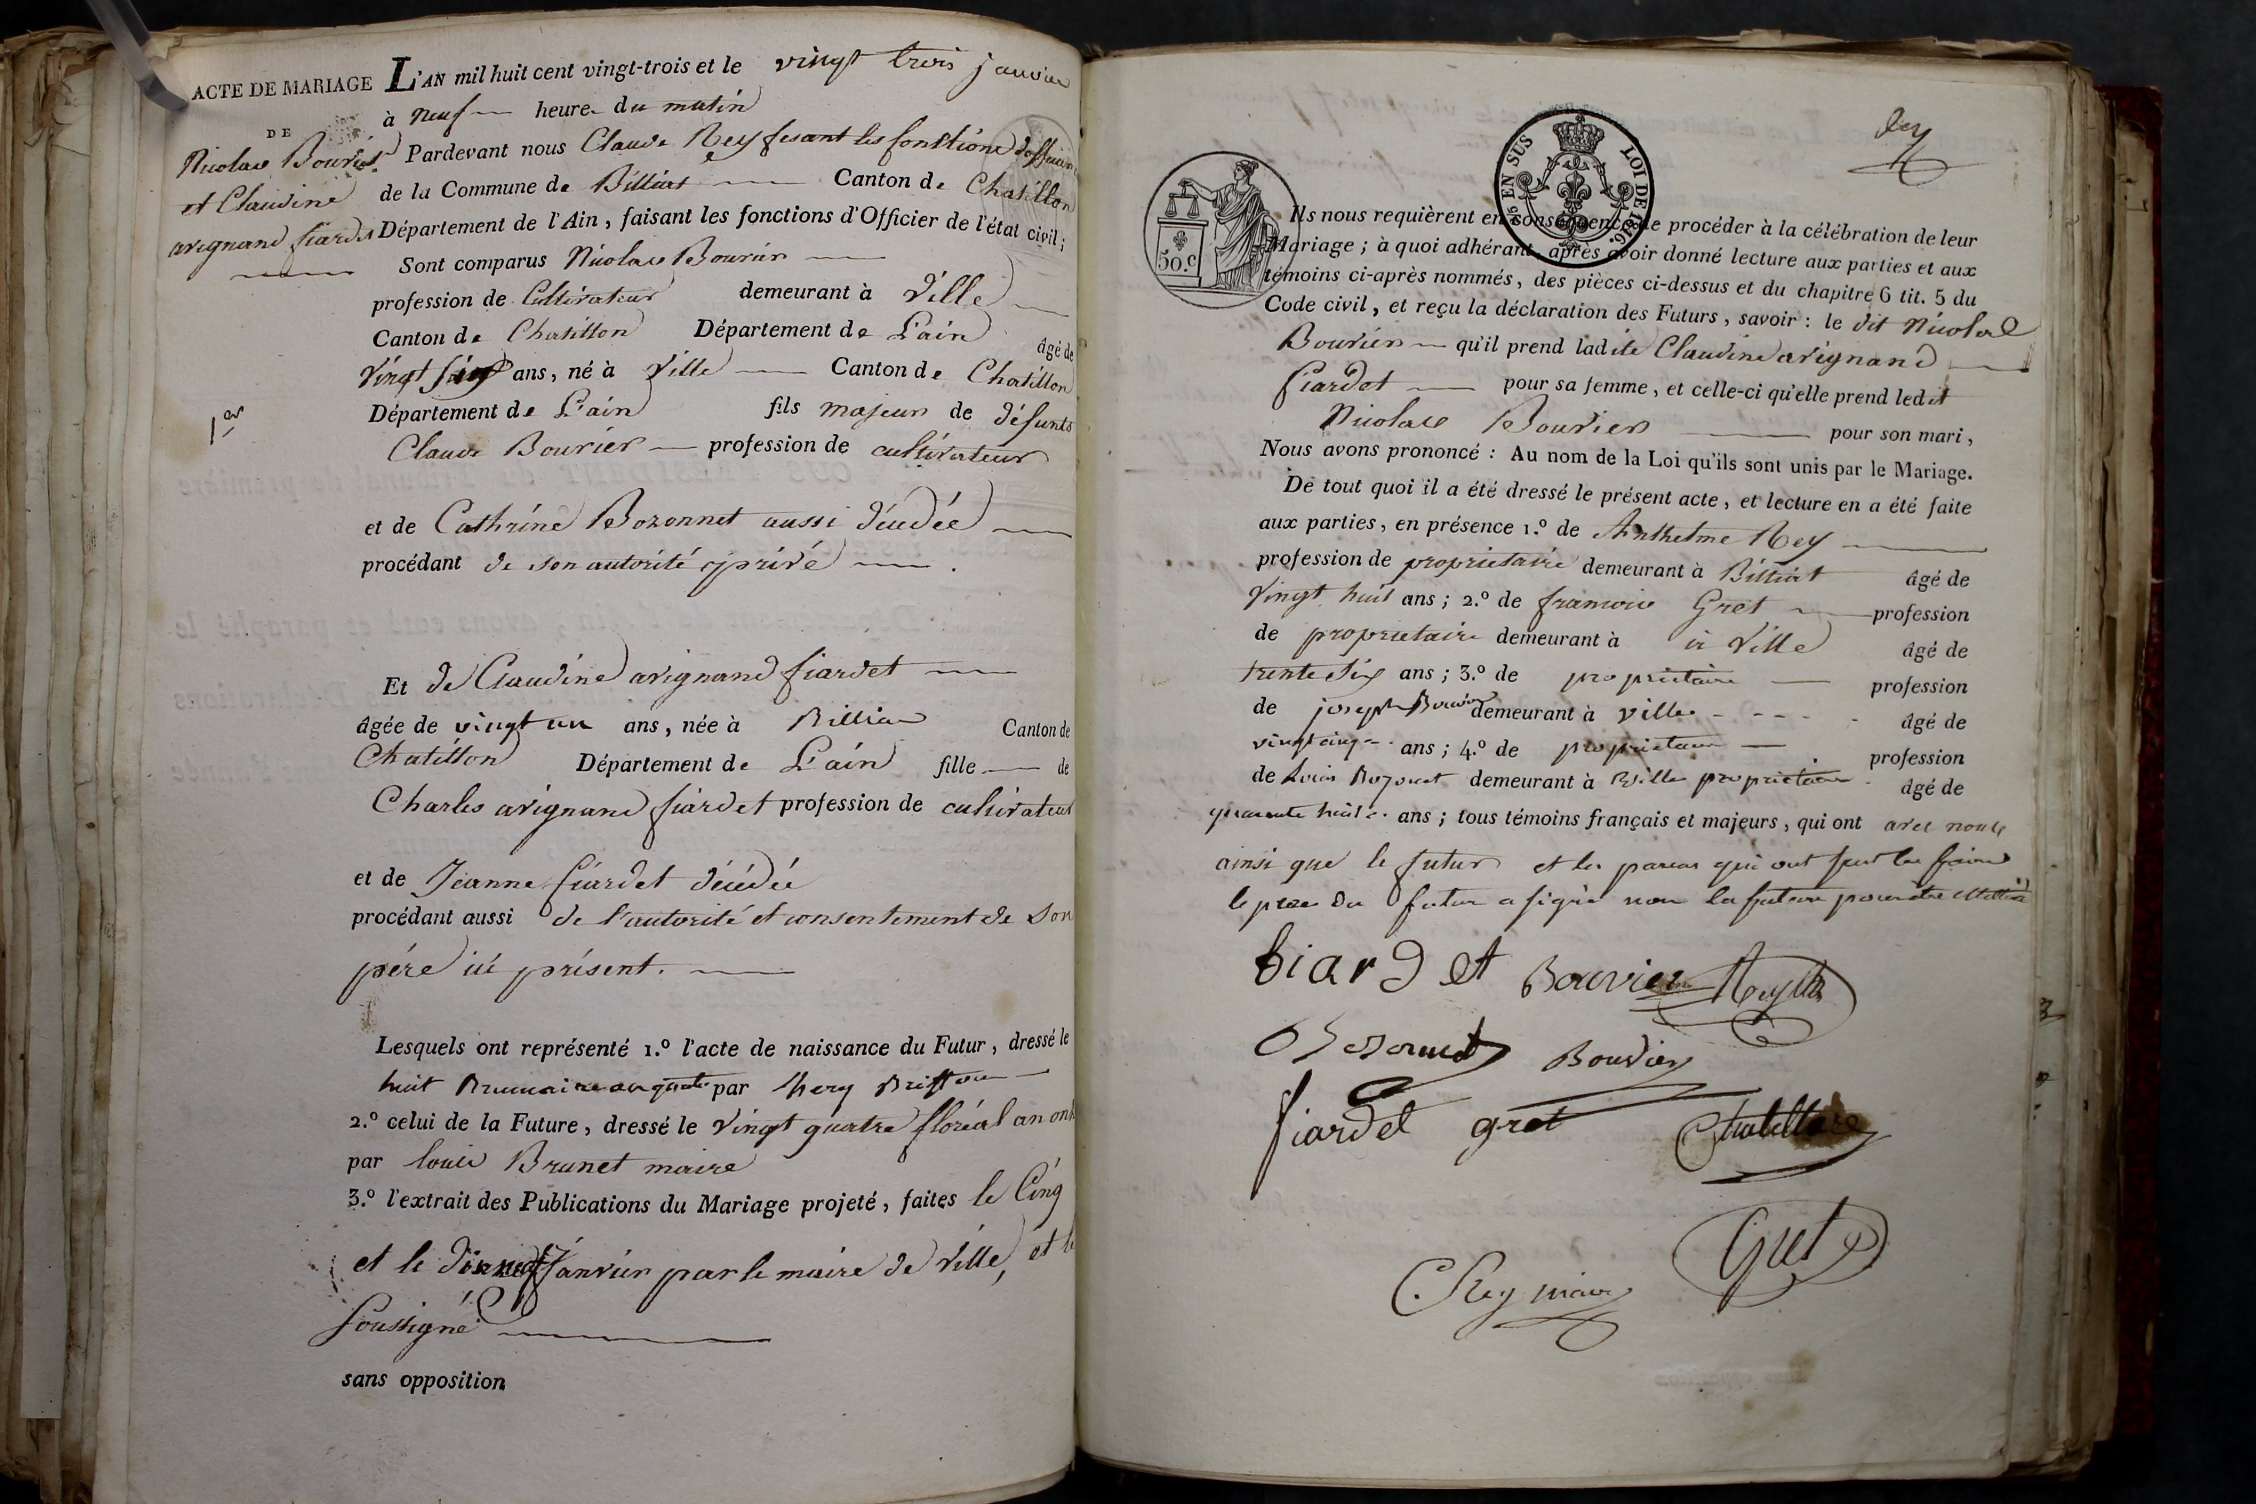 ACTE DE MARIAGE
DE
Nicolas Bouvier
et Claudine
avignand fiardet
1er
L'AN mil huit cent vingt-trois et le vingt trois janvier
à neuf heure du matin
Pardevant nous Claude Rey fesant les fonctions
de la Commune de Billiat Canton de Chatillon
Département de l'Ain, faisant les fonctions d'Officier de l'état civil;
Sont comparus Nicolas Bouvier
profession de Cultivateur demeurant à Ville
Canton de Chatillon Département de L'ain âgé de
vingt ans, né à Ville Canton de Chatillon
Département de L'ain fils majeur de défunts
Claude Bouvier profession de cultivateur
et de Cathrine Bozonnet aussi décédée
procédant de son autorité privé
Et de Claudine avignand fiardet
âgée de vingt un ans, née à Billia Canton de
Chatillon Département de L'ain fille de
Charles avignand fiardet profession de cultivateur
et de Jeanne fiardet décédée
procédant aussi de l'autorité et consentement de son
père ici présent.
Lesquels ont représenté 1.º l'acte de naissance du Futur, dressé le
huit Brumaire an quatre par
2.º celui de la Future, dressé le vingt quatre floréal an onze
par louis Brunet maire
3.º l'extrait des Publications du Mariage projeté, faites le Cinq
et le janvier par le maire de Ville, et le
soussigné
sans opposition
Rey
50.C
EN SUS LOI DE 1816.
Ils nous requièrent en conséquence de procéder à la célébration de leur
Mariage; à quoi adhérant, après avoir donné lecture aux parties et aux
témoins ci-après nommés, des pièces ci-dessus et du chapitre 6 tit. 5 du
Code civil, et reçu la déclaration des Futurs, savoir: le dit Nicolas
Bouvier qu'il prend ladite Claudine avignand
fiardet pour sa femme, et celle-ci qu'elle prend ledit
Nicolas Bouvier pour son mari,
Nous avons prononcé: Au nom de la Loi qu'ils sont unis par le Mariage.
De tout quoi il a été dressé le présent acte, et lecture en a été faite
aux parties, en présence 1.º de Anthelme Rey
profession de proprietaire demeurant à Billiat âgé de
vingt huit ans; 2.º de francois Gret profession
de proprietaire demeurant à à Ville âgé de
trente six ans; 3.º de proprietaire profession
de joseph Bouvier demeurant à ville âgé de
vingt cinq ans; 4.º de proprietaire profession
de Louis Bozonet demeurant à Ville proprietaire âgé de
quarante huit ans; tous témoins français et majeurs, qui ont avec nous
ainsi que le futur et les parens qui ont su le faire
le pere du futur a signé non la future pour être illettrée
fiardet Bouvier Rey
Bosonnet Bouvier
fiardet gret
Gret
C. Rey maire